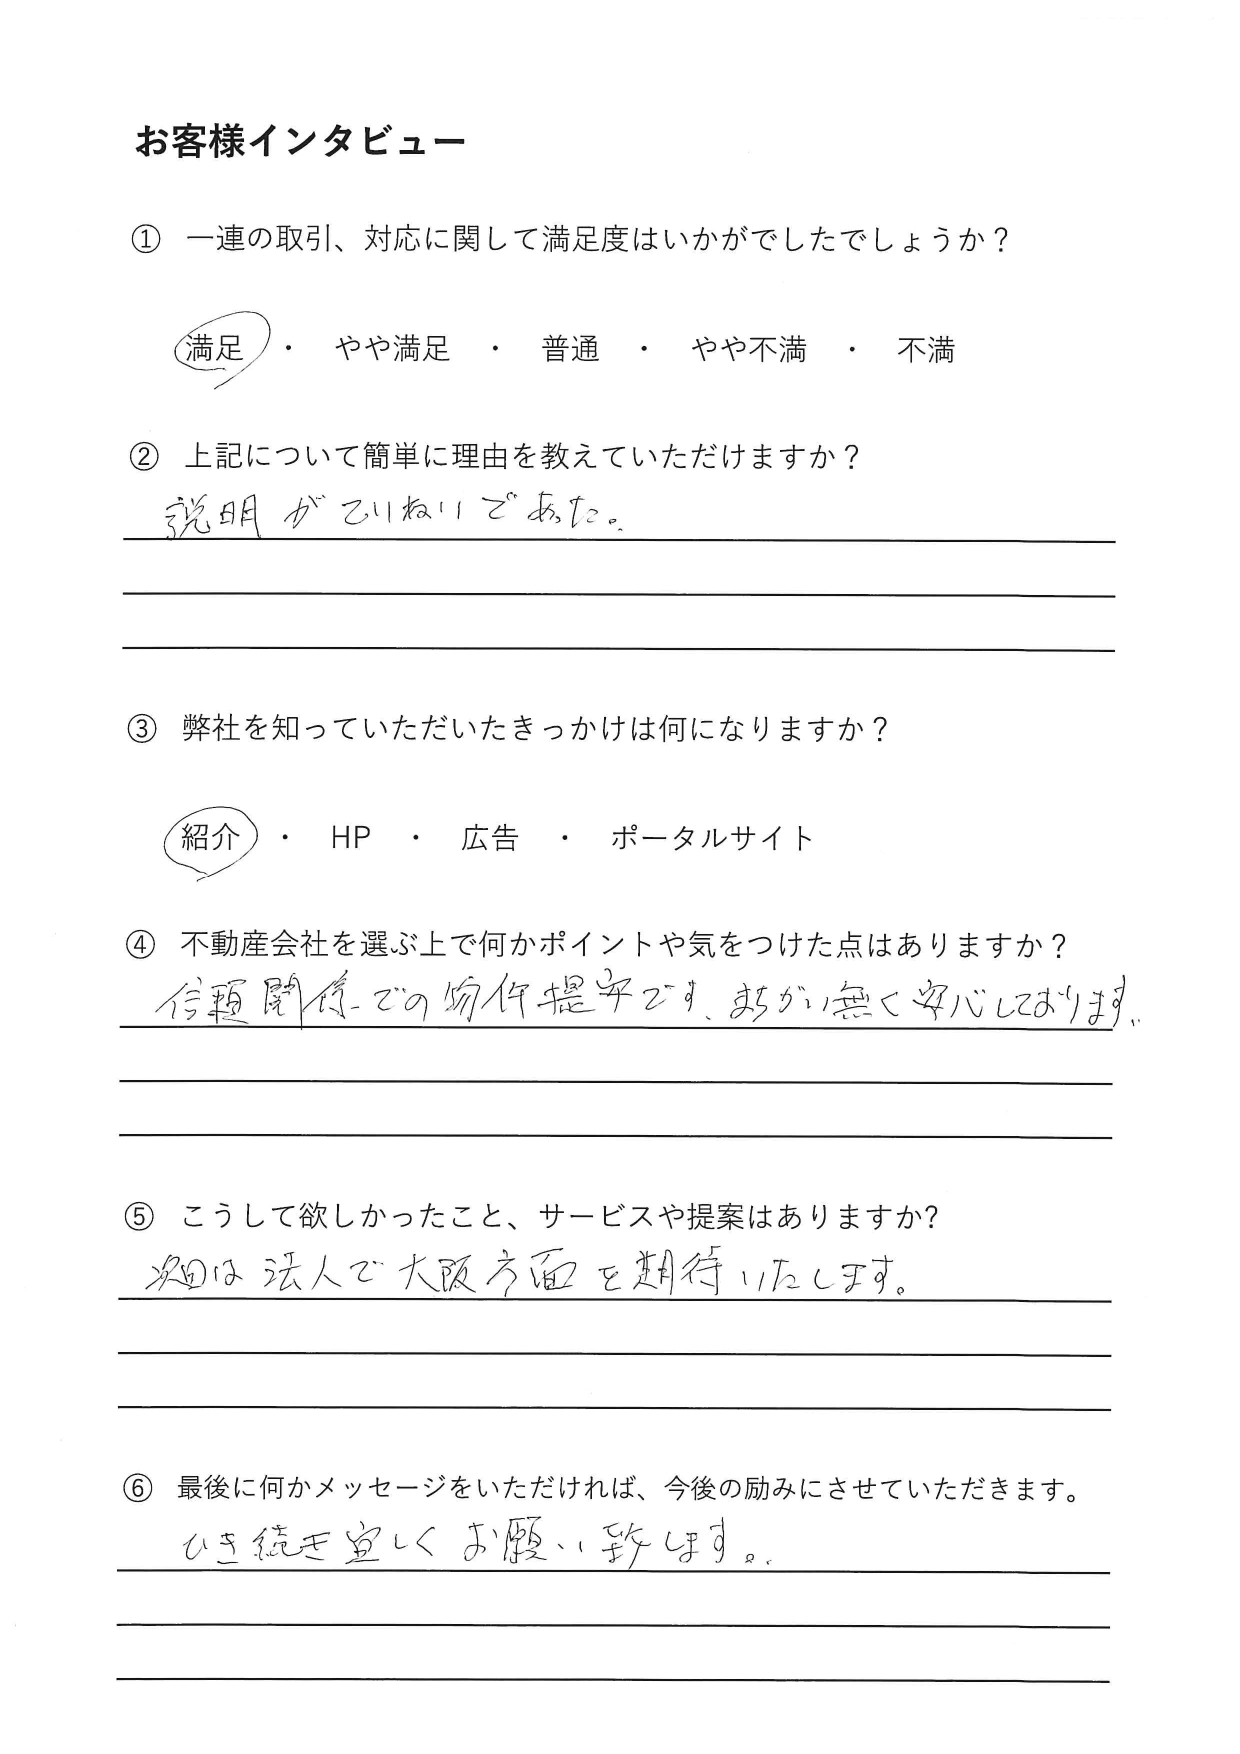 お客様インタビュー
① 一連の取引、対応に関して満足度はいかがでしたでしょうか？
満足 ・ やや満足 ・ 普通 ・ やや不満 ・ 不満
② 上記について簡単に理由を教えていただけますか？
説明がていねいであった。
③ 弊社を知っていただいたきっかけは何になりますか？
紹介 ・ HP ・ 広告 ・ ポータルサイト
④ 不動産会社を選ぶ上で何かポイントや気をつけた点はありますか？
信頼関係での物件提案です、まちがい無く安心しております。
⑤ こうして欲しかったこと、サービスや提案はありますか?
次回は法人で大阪方面を期待いたします。
⑥ 最後に何かメッセージをいただければ、今後の励みにさせていただきます。
ひき続き宜しくお願い致します。